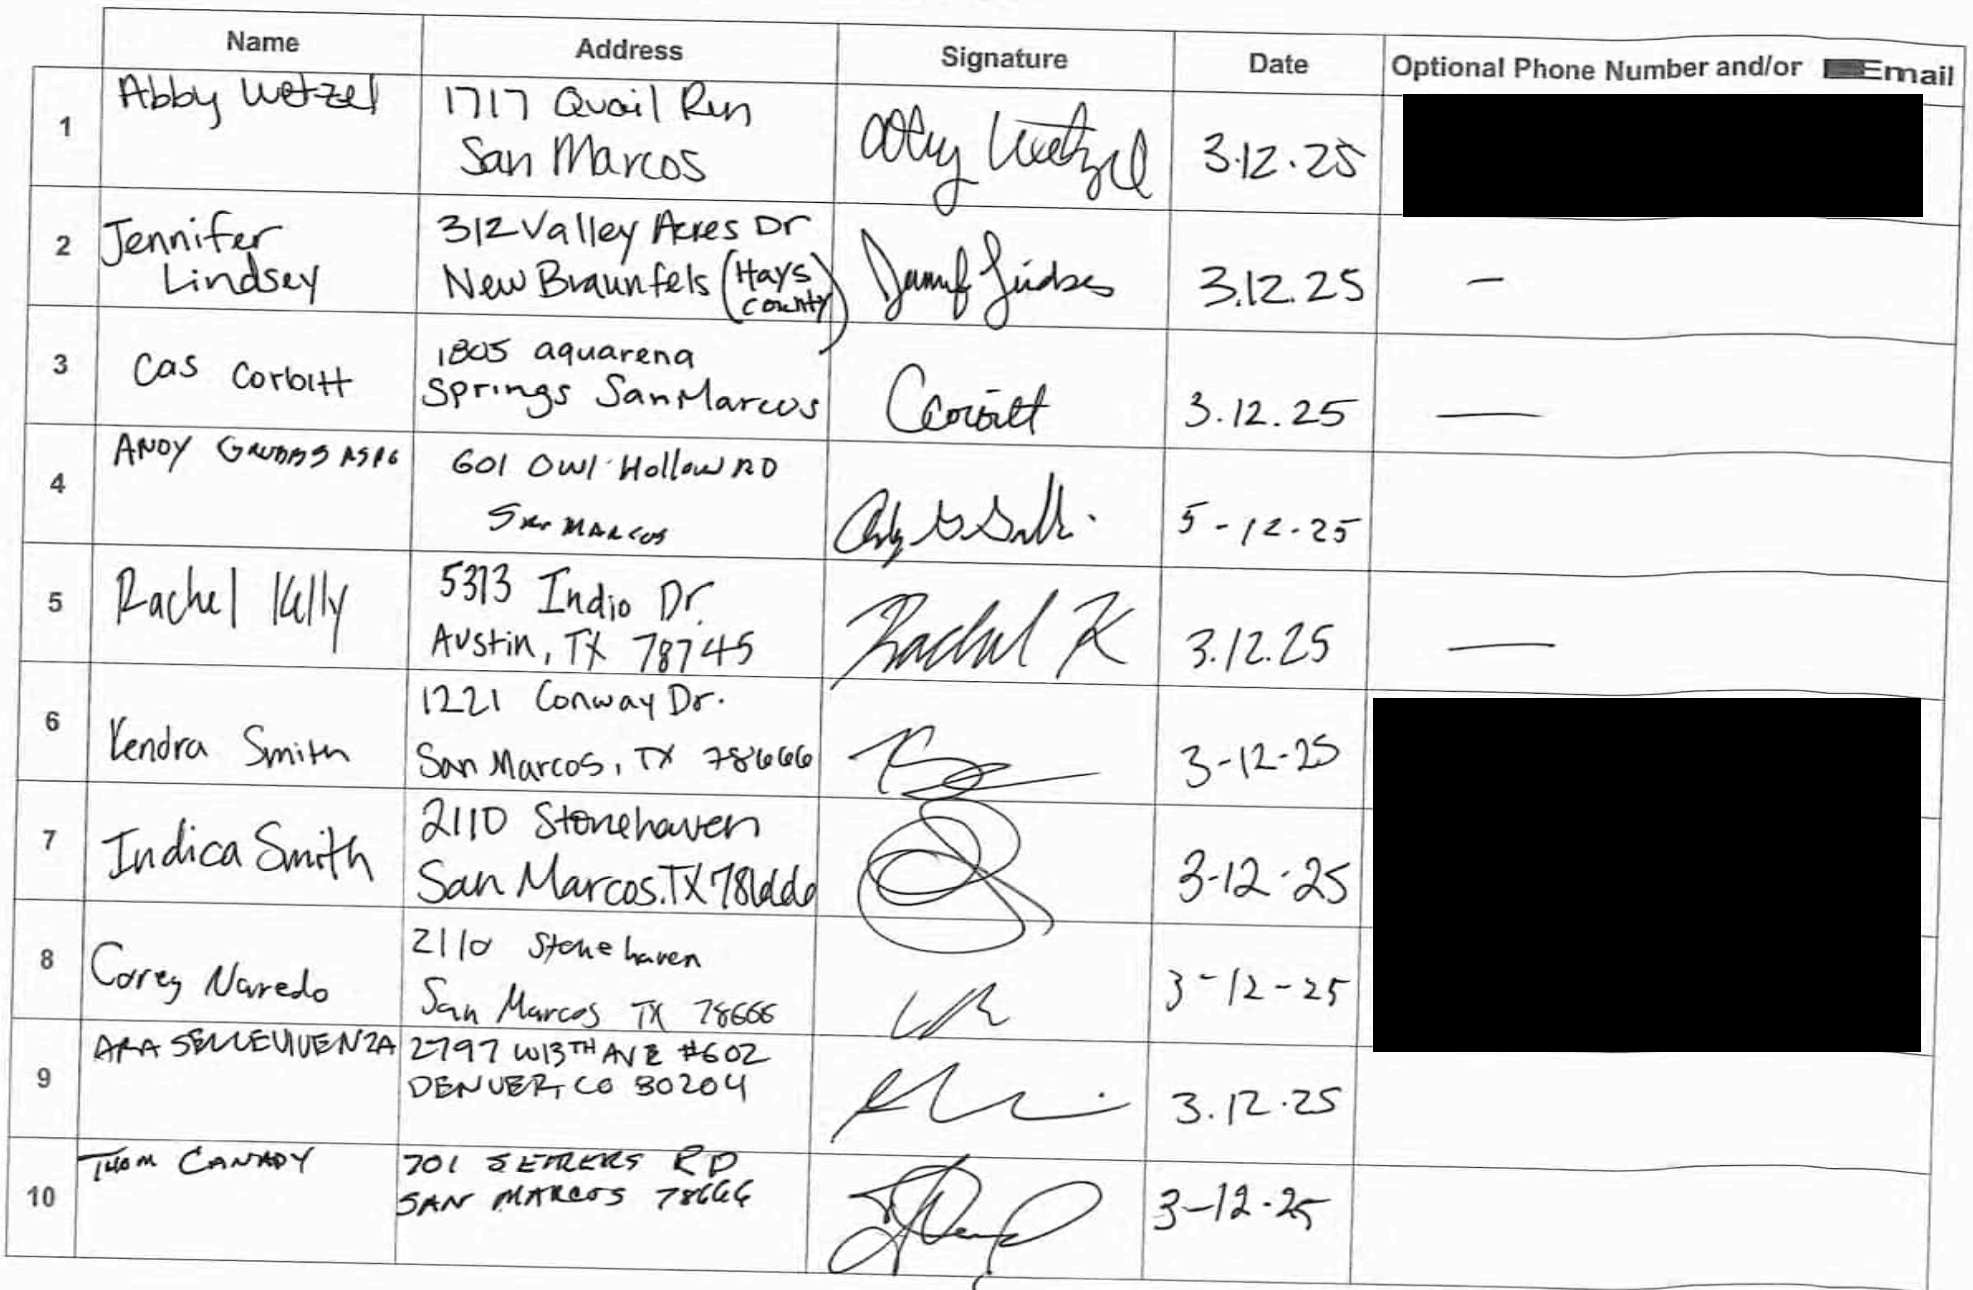 Name Address Signature Date Optional Phone Number and/or Email
1 Abby Wetzel 1717 Quail Run
San Marcos Abby Wetzel 3.12.25
2 Jennifer
Lindsey 312 Valley Acres Dr
New Braunfels (Hays
County) 3.12.25 —
3 Cas Corbitt 1805 aquarena
Springs San Marcos CCorbitt 3.12.25 —
4 ANDY GRUBBS 601 Owl Hollow RD
SAN MARCOS 5-12-25
5 Rachel Kelly 5313 Indio Dr.
Austin, TX 78745 Rachel K 3.12.25 —
6 Kendra Smith 1221 Conway Dr.
San Marcos, TX 78666 3-12-25
7 Indica Smith 2110 Stonehaven
San Marcos. TX 78666 3-12-25
8 Corey Naredo 2110 Stonehaven
San Marcos TX 78666 3-12-25
9 2797 W13TH AVE #602
DENVER, CO 80204 3.12.25
10 THOM CANADY 701 SETTLERS RD
SAN MARCOS 78666 3-12-25